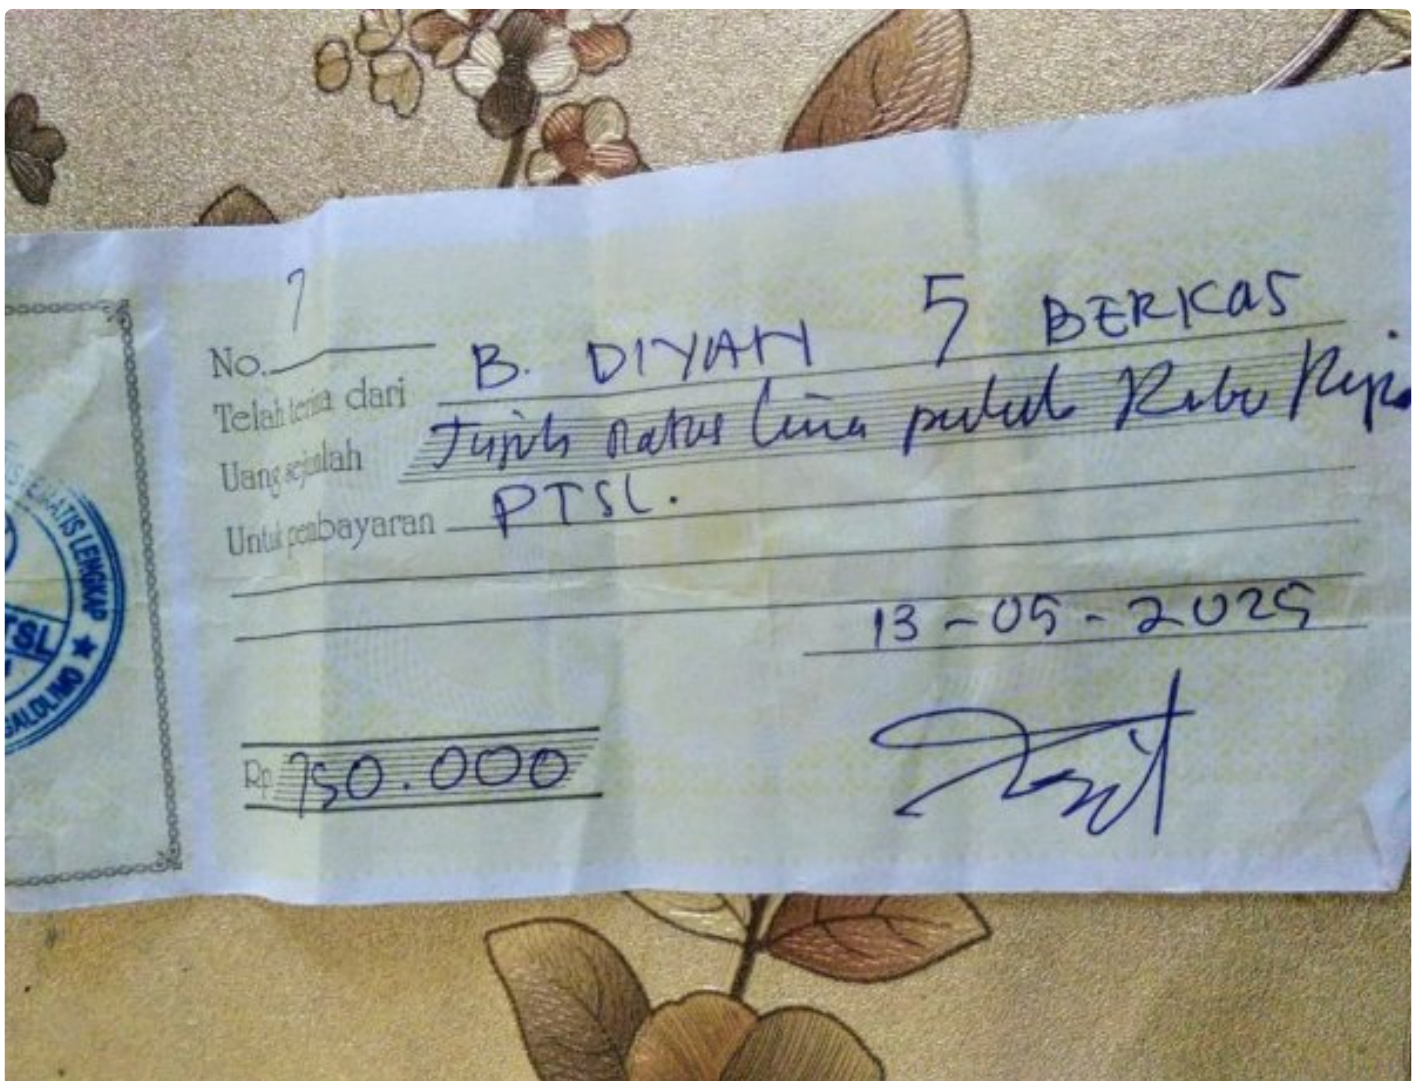 No. 7
Telah terima dari B. DIYAH 5 BERKAS
Uang sejumlah Tujuh Ratus lima puluh Ribu
Untuk pembayaran PTSL.
13-05-2025
Rp 750.000
LENGKAP ★
TSL